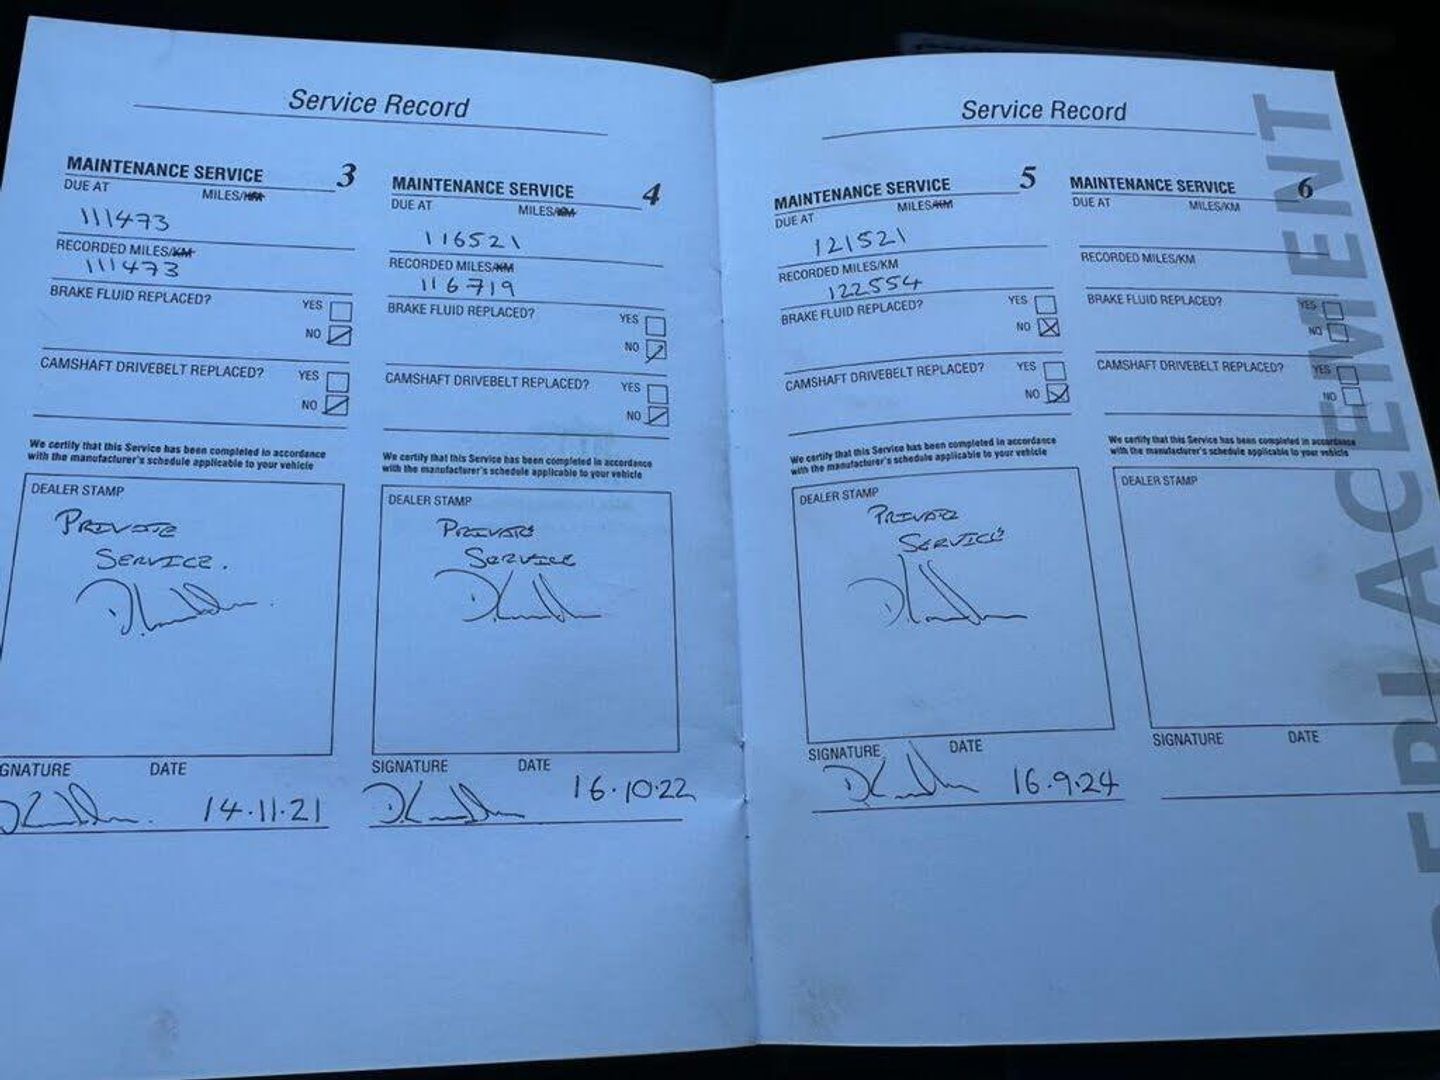 Service Record
MAINTENANCE SERVICE 3
DUE AT MILES/KM
111473
RECORDED MILES/KM
111473
BRAKE FLUID REPLACED? YES
NO
CAMSHAFT DRIVEBELT REPLACED? YES
NO
We certify that this Service has been completed in accordance
with the manufacturer's schedule applicable to your vehicle
DEALER STAMP
PRIVATE
SERVICE.
GNATURE DATE
14.11.21
MAINTENANCE SERVICE 4
DUE AT MILES/KM
116521
RECORDED MILES/KM
116719
BRAKE FLUID REPLACED? YES
NO
CAMSHAFT DRIVEBELT REPLACED? YES
NO
We certify that this Service has been completed in accordance
with the manufacturer's schedule applicable to your vehicle
DEALER STAMP
PRIVATE
SERVICE
SIGNATURE DATE
16.10.22
Service Record
MAINTENANCE SERVICE 5
DUE AT MILES/KM
121521
RECORDED MILES/KM
122554
BRAKE FLUID REPLACED? YES
NO
CAMSHAFT DRIVEBELT REPLACED? YES
NO
We certify that this Service has been completed in accordance
with the manufacturer's schedule applicable to your vehicle
DEALER STAMP
PRIVATE
SERVICE
SIGNATURE DATE
16.9.24
MAINTENANCE SERVICE 6
DUE AT MILES/KM
RECORDED MILES/KM
BRAKE FLUID REPLACED? YES
NO
CAMSHAFT DRIVEBELT REPLACED? YES
NO
We certify that this Service has been completed in accordance
with the manufacturer's schedule applicable to your vehicle
DEALER STAMP
SIGNATURE DATE
REPLACEMENT